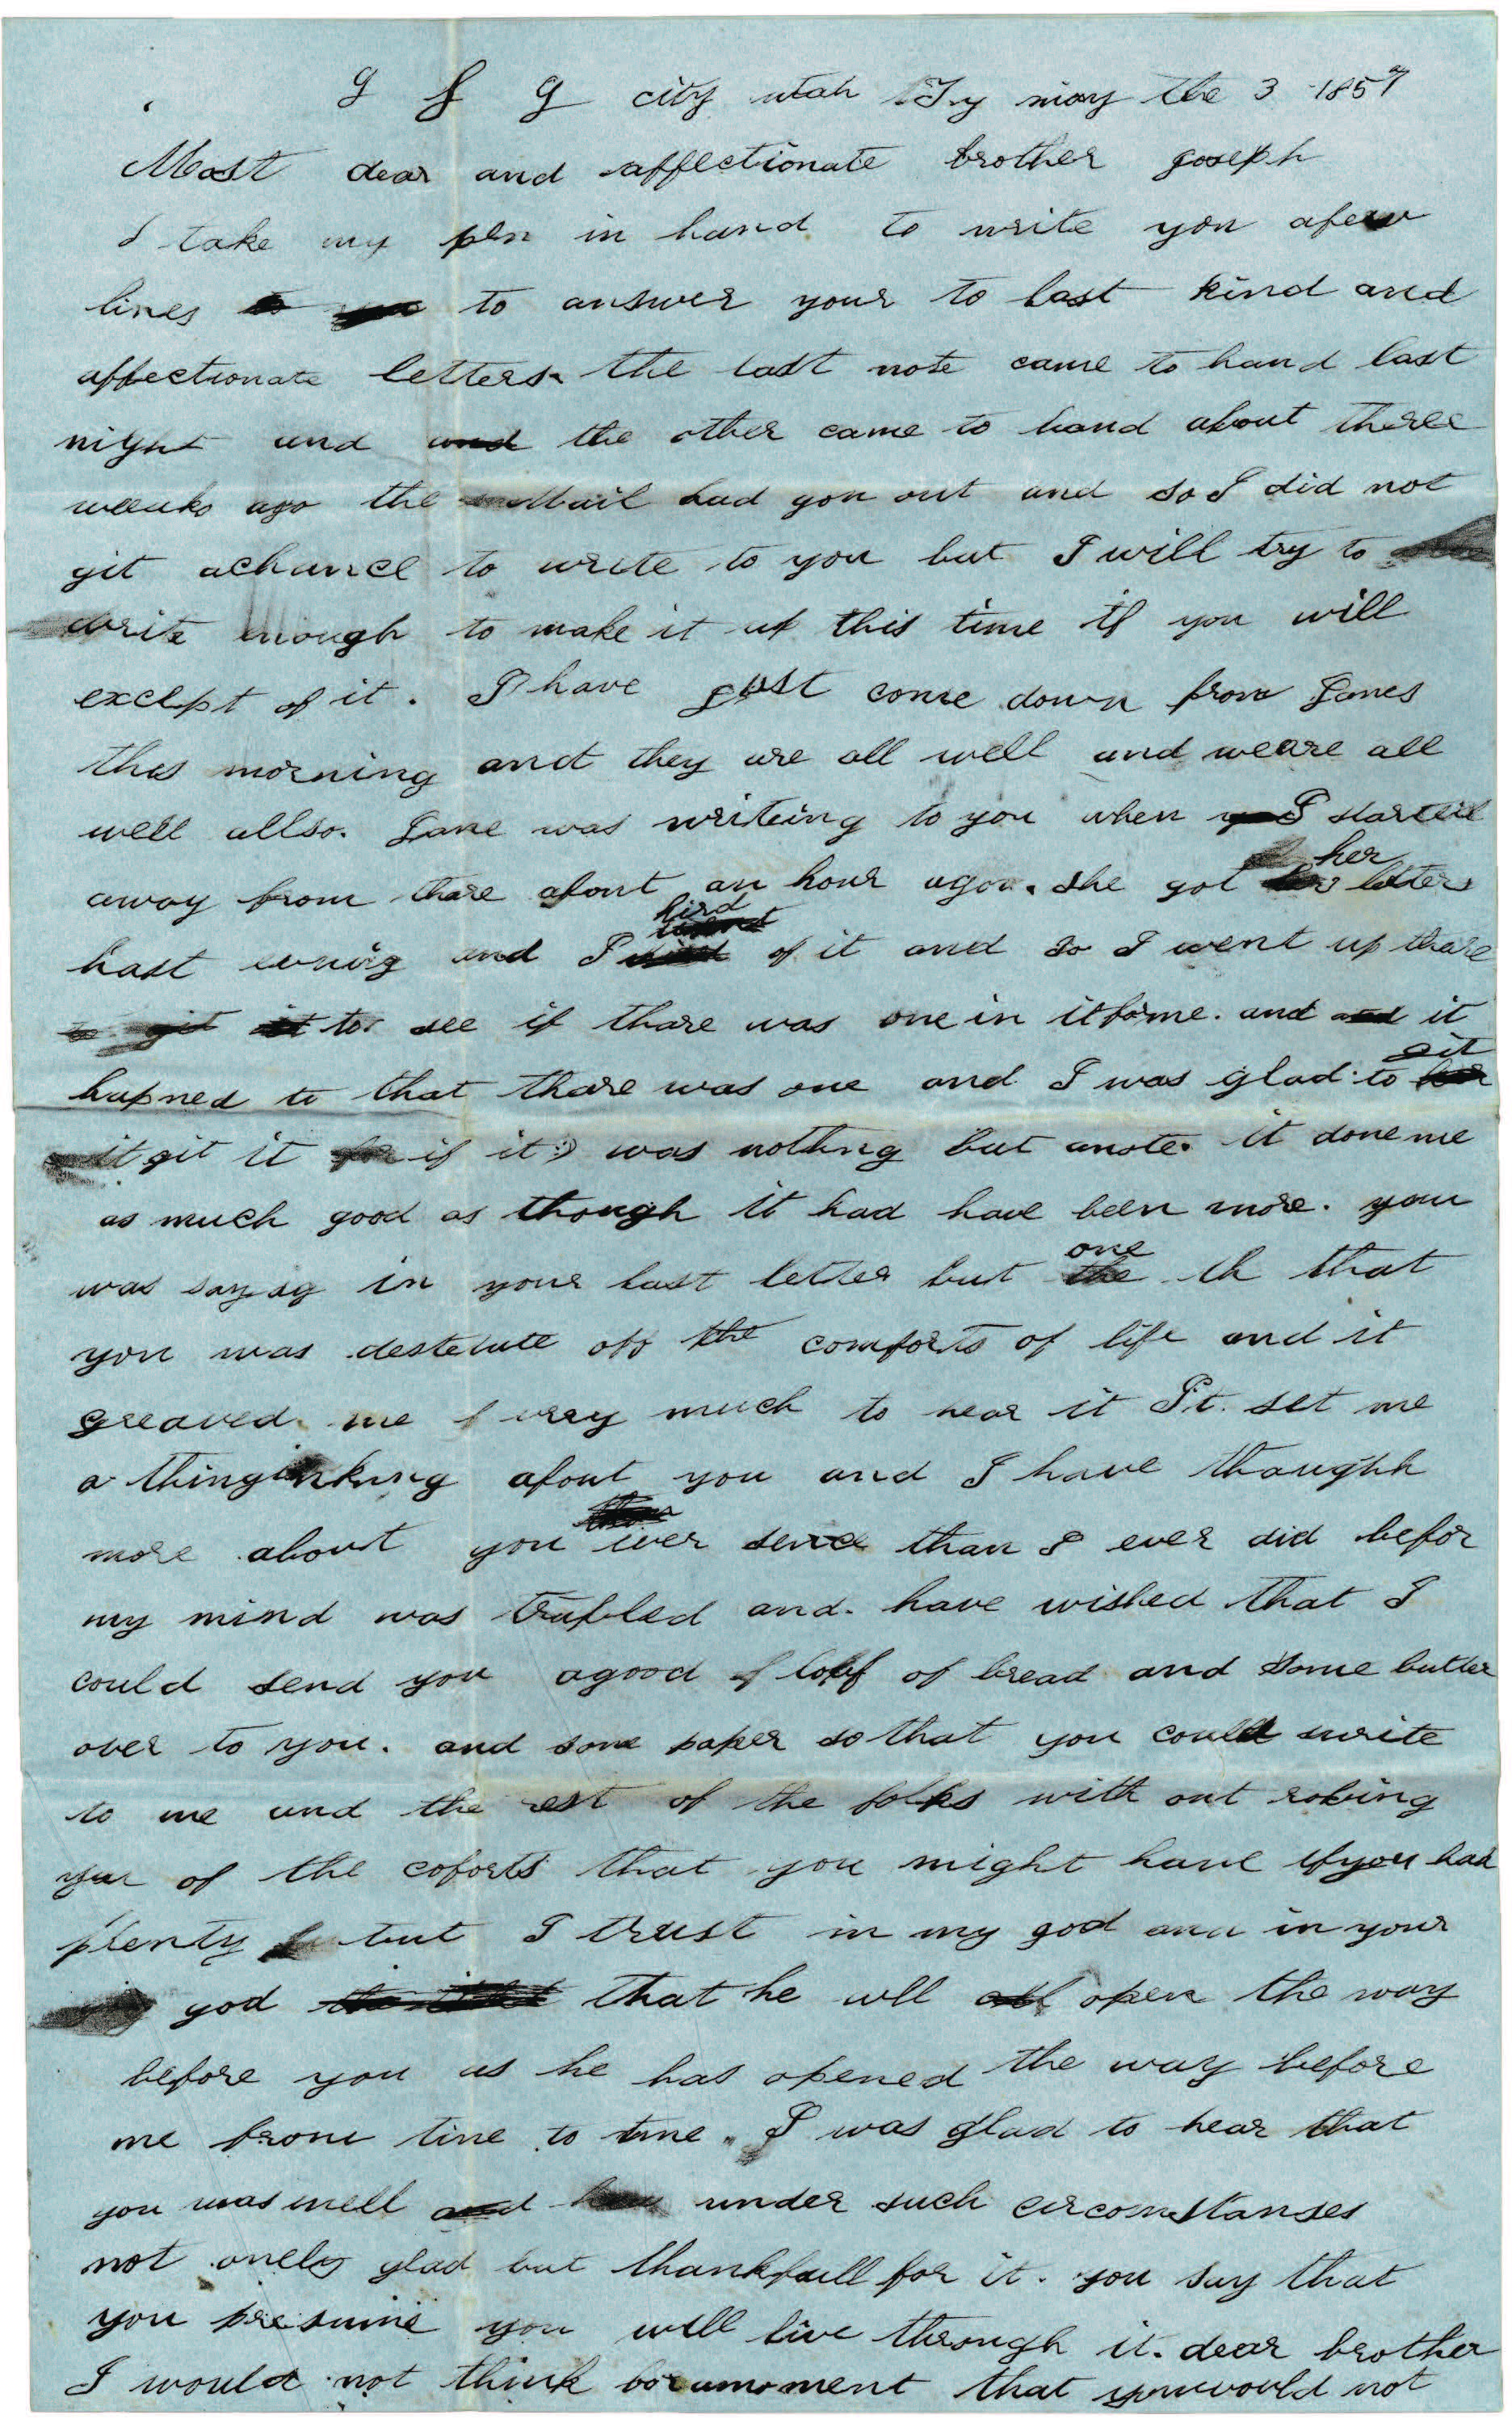 g s g city utah Ty may the 3 1857
Most dear and affectionate brother goseph
I take my pen in hand to write you afew
lines to to answer your to last kind and
affectionate letters the last note came to hand last
night and and the other came to hand about theree
weeaks ago the Mail had gon out and so I did not
git achance to write to you but I will try to
write enough to make it up this time if you will
except of it. I have gust come down from Janes
this morning and they are all well and weare all
well allso. Jane was writeing to you when I started
away from thare about an hour agow. she got her letters
last evnig and I hird of it and so I went up thare
to git it to see if thare was one in it forme. and and it
hapned to that thare was one and I was glad to git
it git it if it was nothing but anote. it done me
as much good as though it had have been more. you
was sayag in your last letter but one the th that
you was destetute off the comforts of life and it
greaved me verey much to hear it It. set me
a thinginking about you and I have thoughh
more about you ever sence than I ever did befor
my mind was trubled and. have wished that I
could send you agood lof of bread and some butter
over to you. and some paper so that you could write
to me and the rest of the folks with out robing
your of the coforts that you might have ifyou had
plenty but I trust in my god and in your
god that he will open the way
before you as he has opened the way before
me from time to time. I was glad to hear that
you was well and under such circomstanses
not onely glad but thankfull for it. you say that
you presume you will live through it. dear brother
I would not think for amoment that youwould not